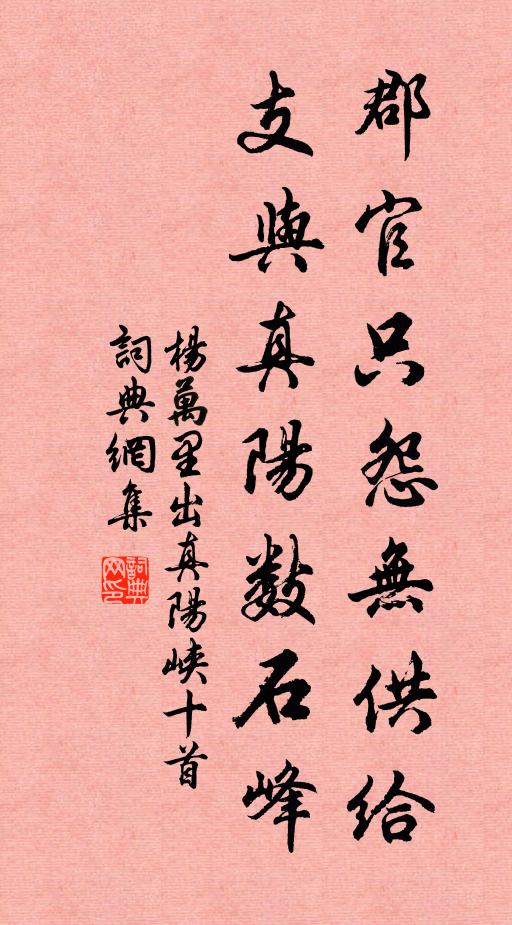 郡官只怨無供給
支與真陽数石峰
楊萬里出真陽峽十首
詞典網集
詞典网印